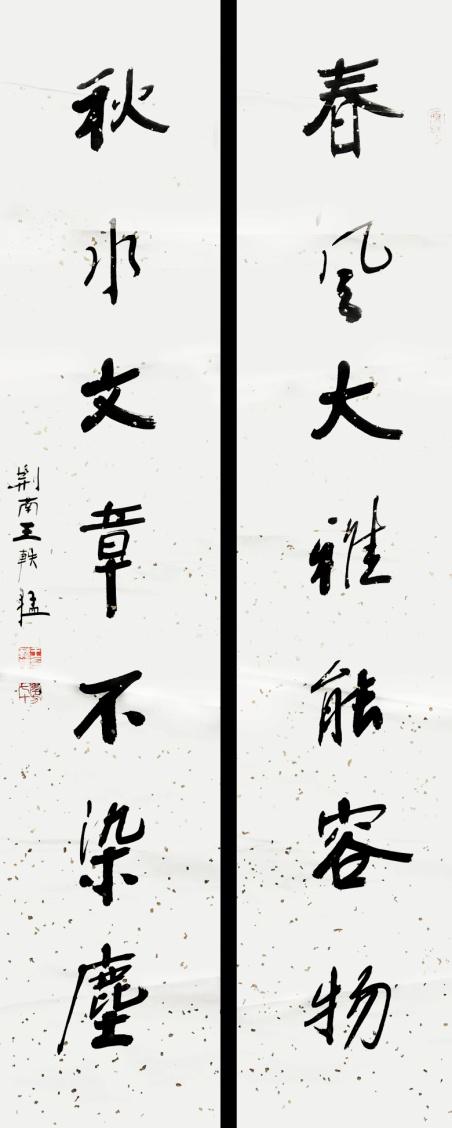 春风大雅能容物
秋水文章不染塵
荆南王軼猛